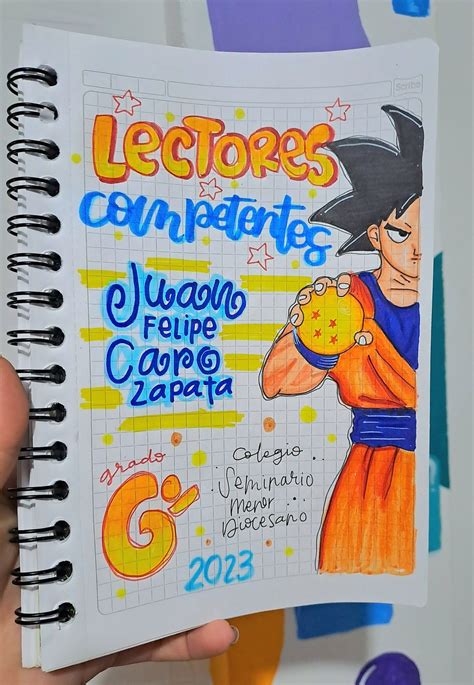 Scribe
LECTORES
competentes
Juan
Felipe
Caro
Zapata
grado
6°
Colegio
Seminario
Menor
Diocesano
2023